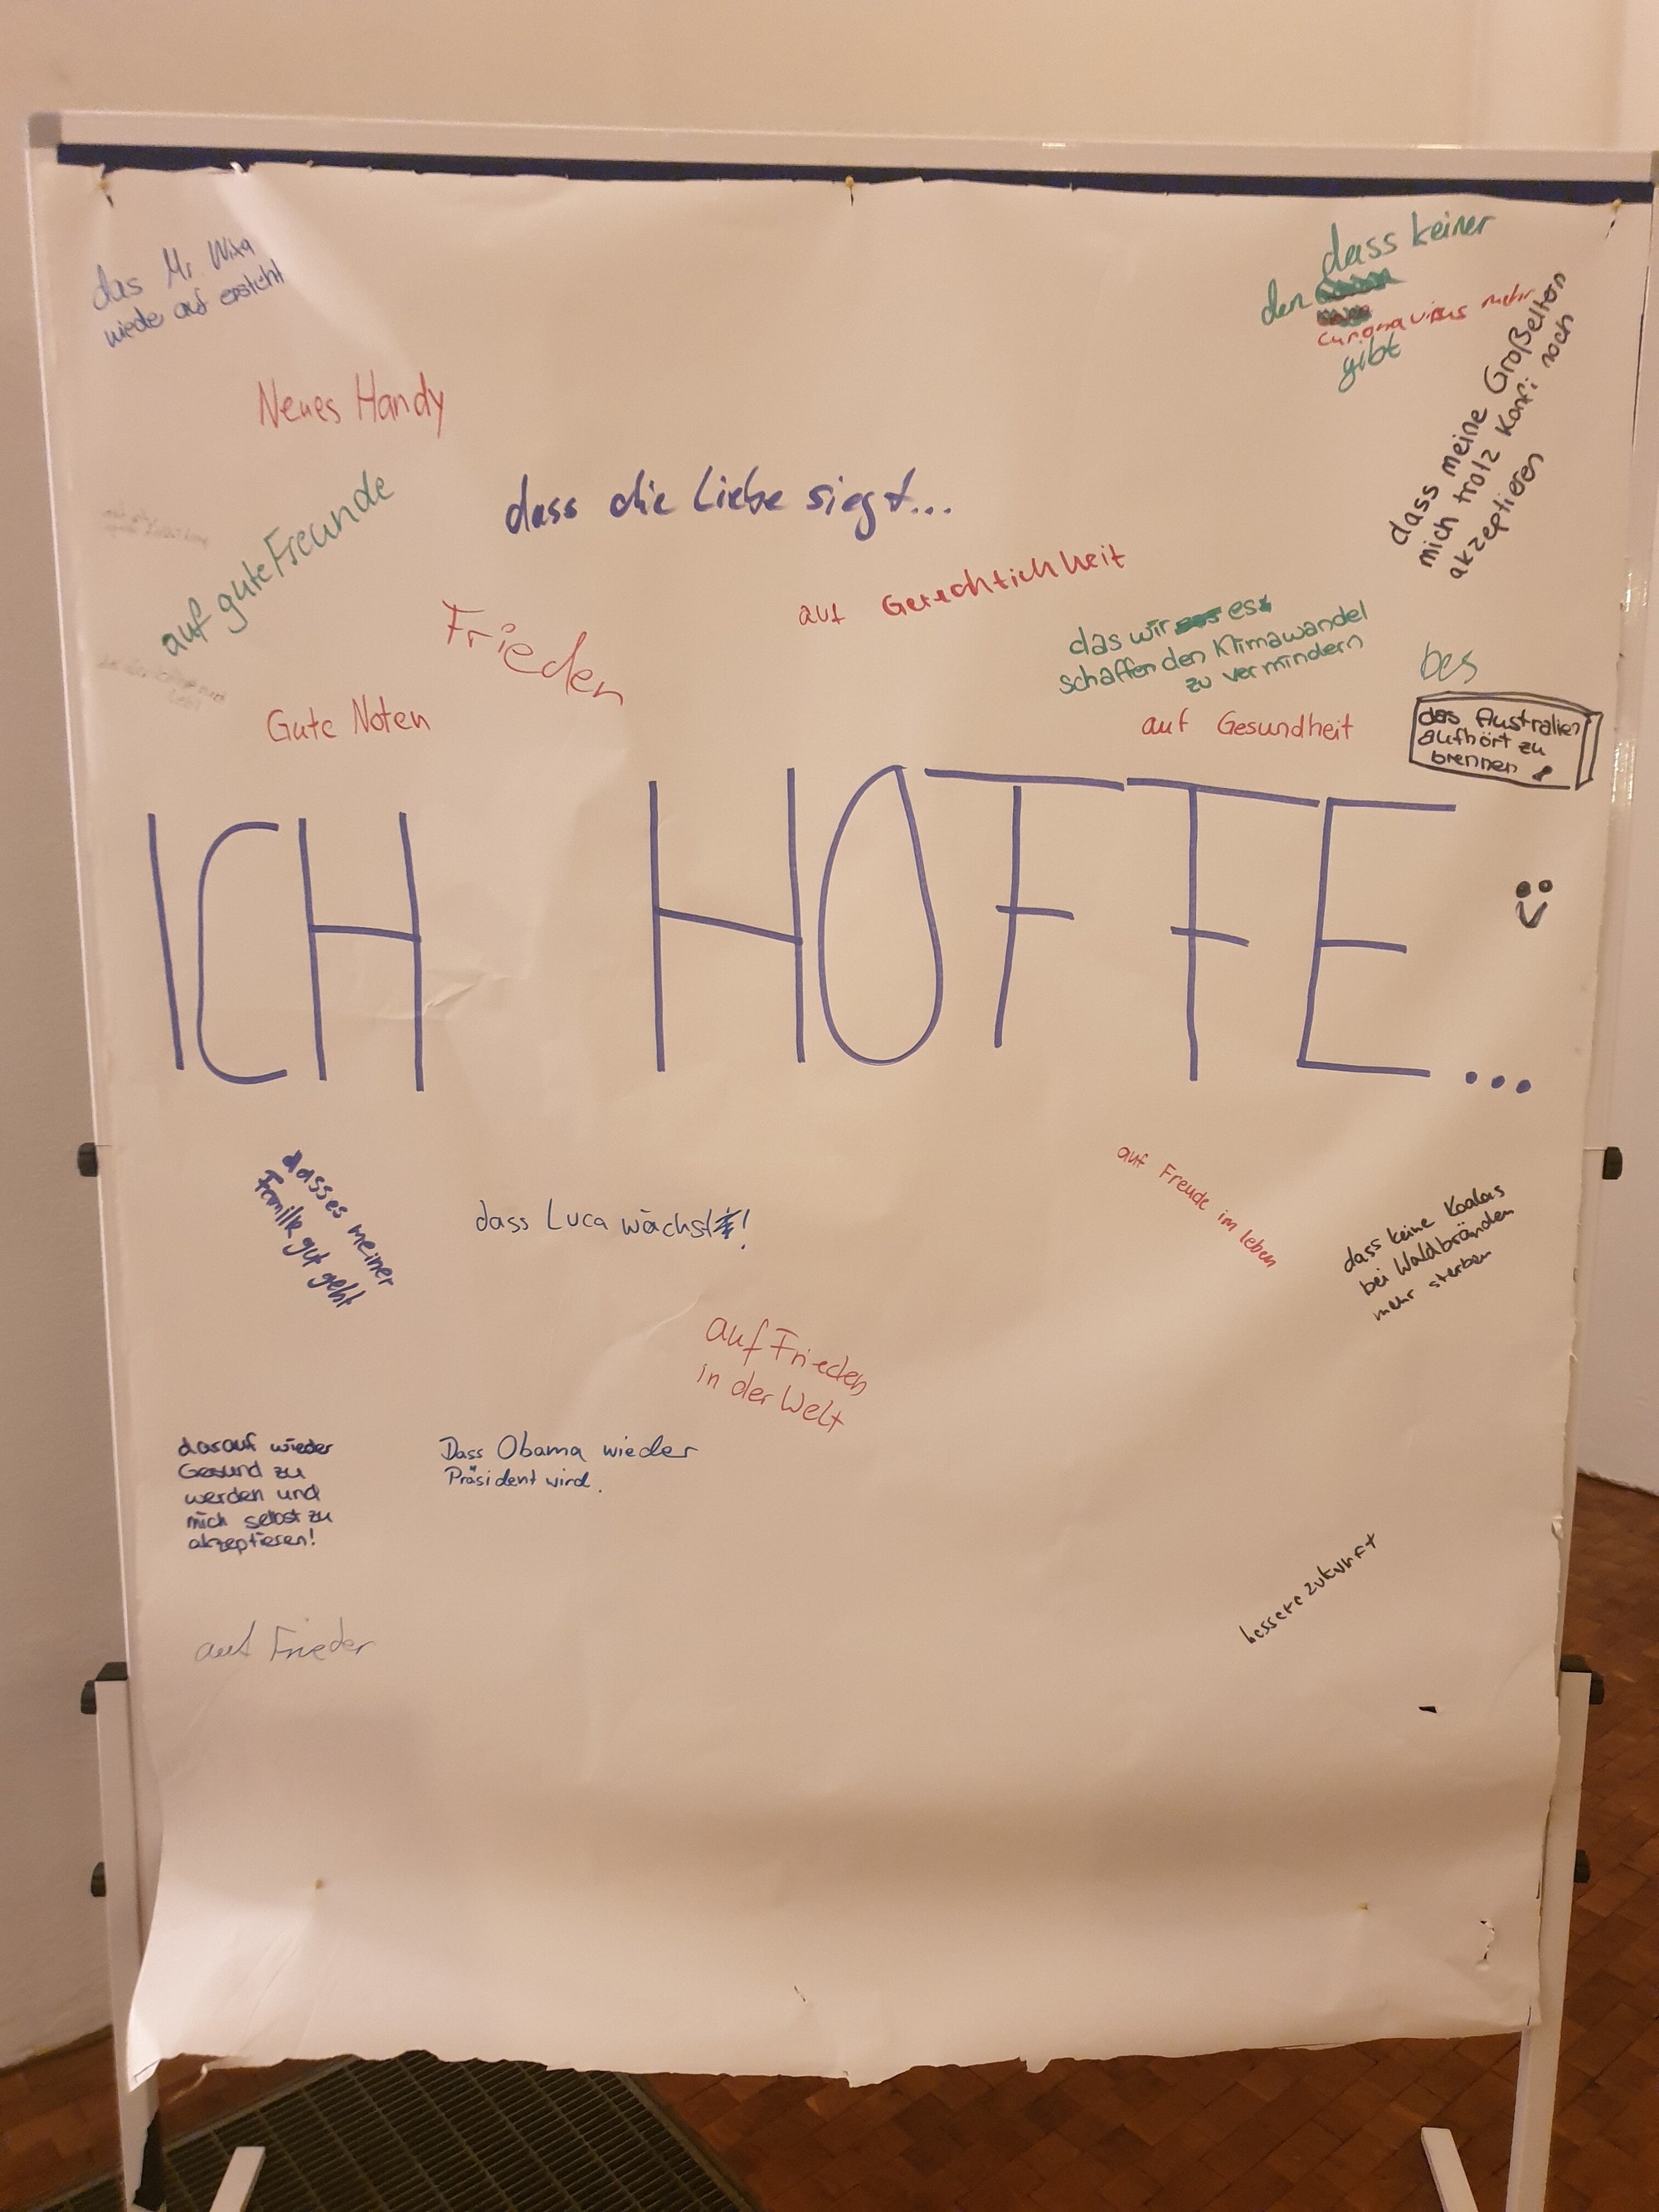 das Mr. Wixa
wieder auf ersteht
dass keiner
den
curonavirus mehr
gibt
Neues Handy
dass meine Großeltern
mich trotz Konfi noch
akzeptieren
dass die Liebe siegt...
auf gute Freunde
Frieden
auf Gerechtichkeit
das wir es
schaffen den Klimawandel
zu vermindern
bes
Gute Noten
auf Gesundheit
das Australien
aufhört zu
brennen !
ICH HOFFE...
dass es meiner
Familie gut geht
dass Luca wächst!
auf Freude im leben
dass keine Koalas
bei Waldbränden
mehr sterben
auf Frieden
in der Welt
darauf wieder
Gesund zu
werden und
mich selbst zu
akzeptieren!
Dass Obama wieder
Präsident wird.
bessere zukunft
auf Frieder